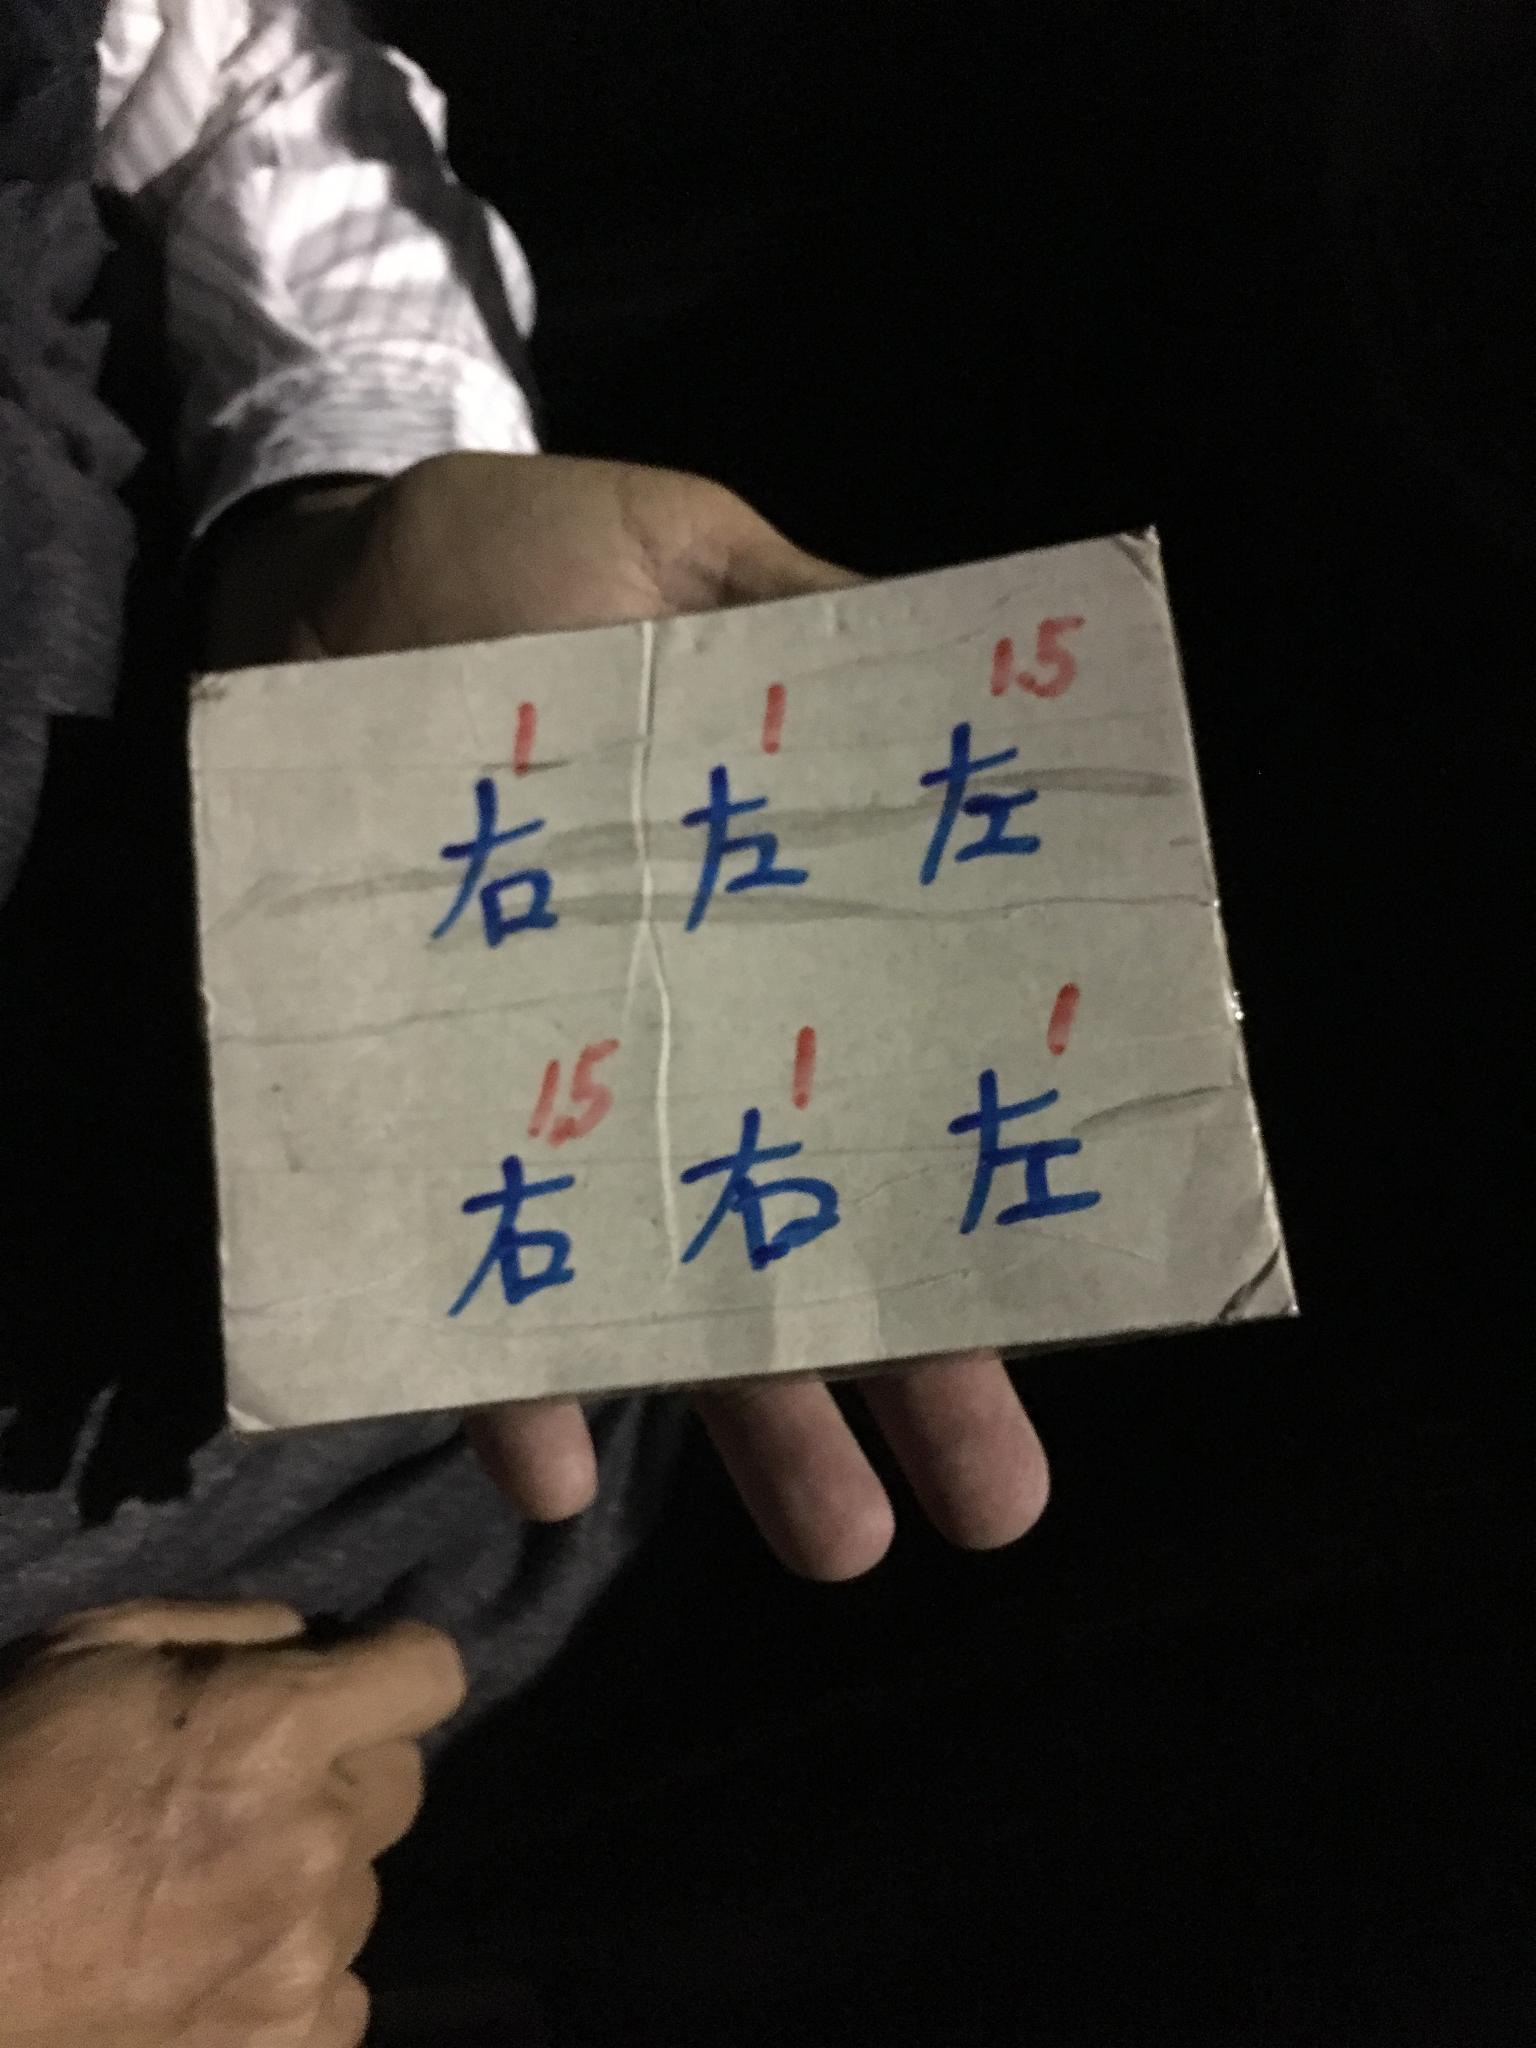 1 1 1.5
右 左 左
1.5 1 1
右 右 左